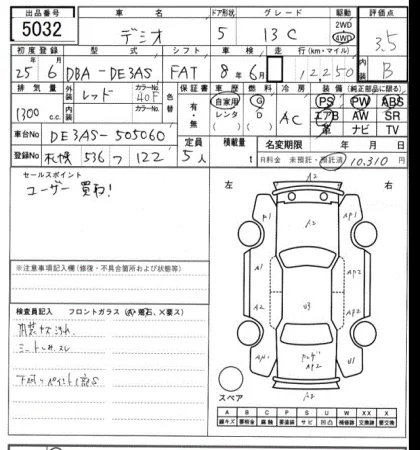 出品番号 車名 ドア形状 グレード 駆動 評価点
5032 デミオ 5 13C 2WD 4WD 3.5
初度登録 型式 シフト 車検 走行 (km・マイル) 内装
25年 6月 DBA-DE3AS FAT 8年 6月 12,250 B
排気量 外装 レッド カラーNo. 40F 色替 保証書 車歴 燃料 冷房 装備 (純正部品に限る)
1300 c.c. 内装 カラーNo. 有・無 自家用 G AC PS PW ABS
レンタ D エアB AW SR
車台No DE3AS-505060 革 ナビ TV
登録No 札幌 536 つ 122 定員 5人 積載量 t 名変期限 年 月 日
月料金 未預託・預託済 10,310円
セールスポイント
ユーザー買取!
左 右
A2
A2
A1
AP1
A2
AP2
U3
U1
AP2
A2
※注意事項記入欄 (修復・不具合箇所および状態等)
検査員記入 フロントガラス (A飛石、X要ス)
内装キズ汚れ
シートしみ、スレ
スペア
A B C P S U W X XX
線キズ 要板金 腐蝕 要塗装 サビ 凹凸 補修跡 要交換 交換済